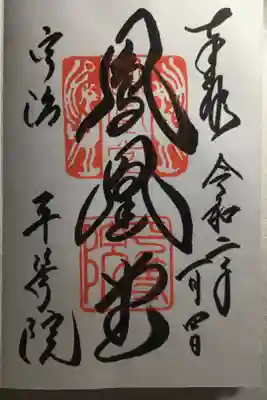 奉拝
令和二年一月四日
鳳凰堂
宇治
平等院